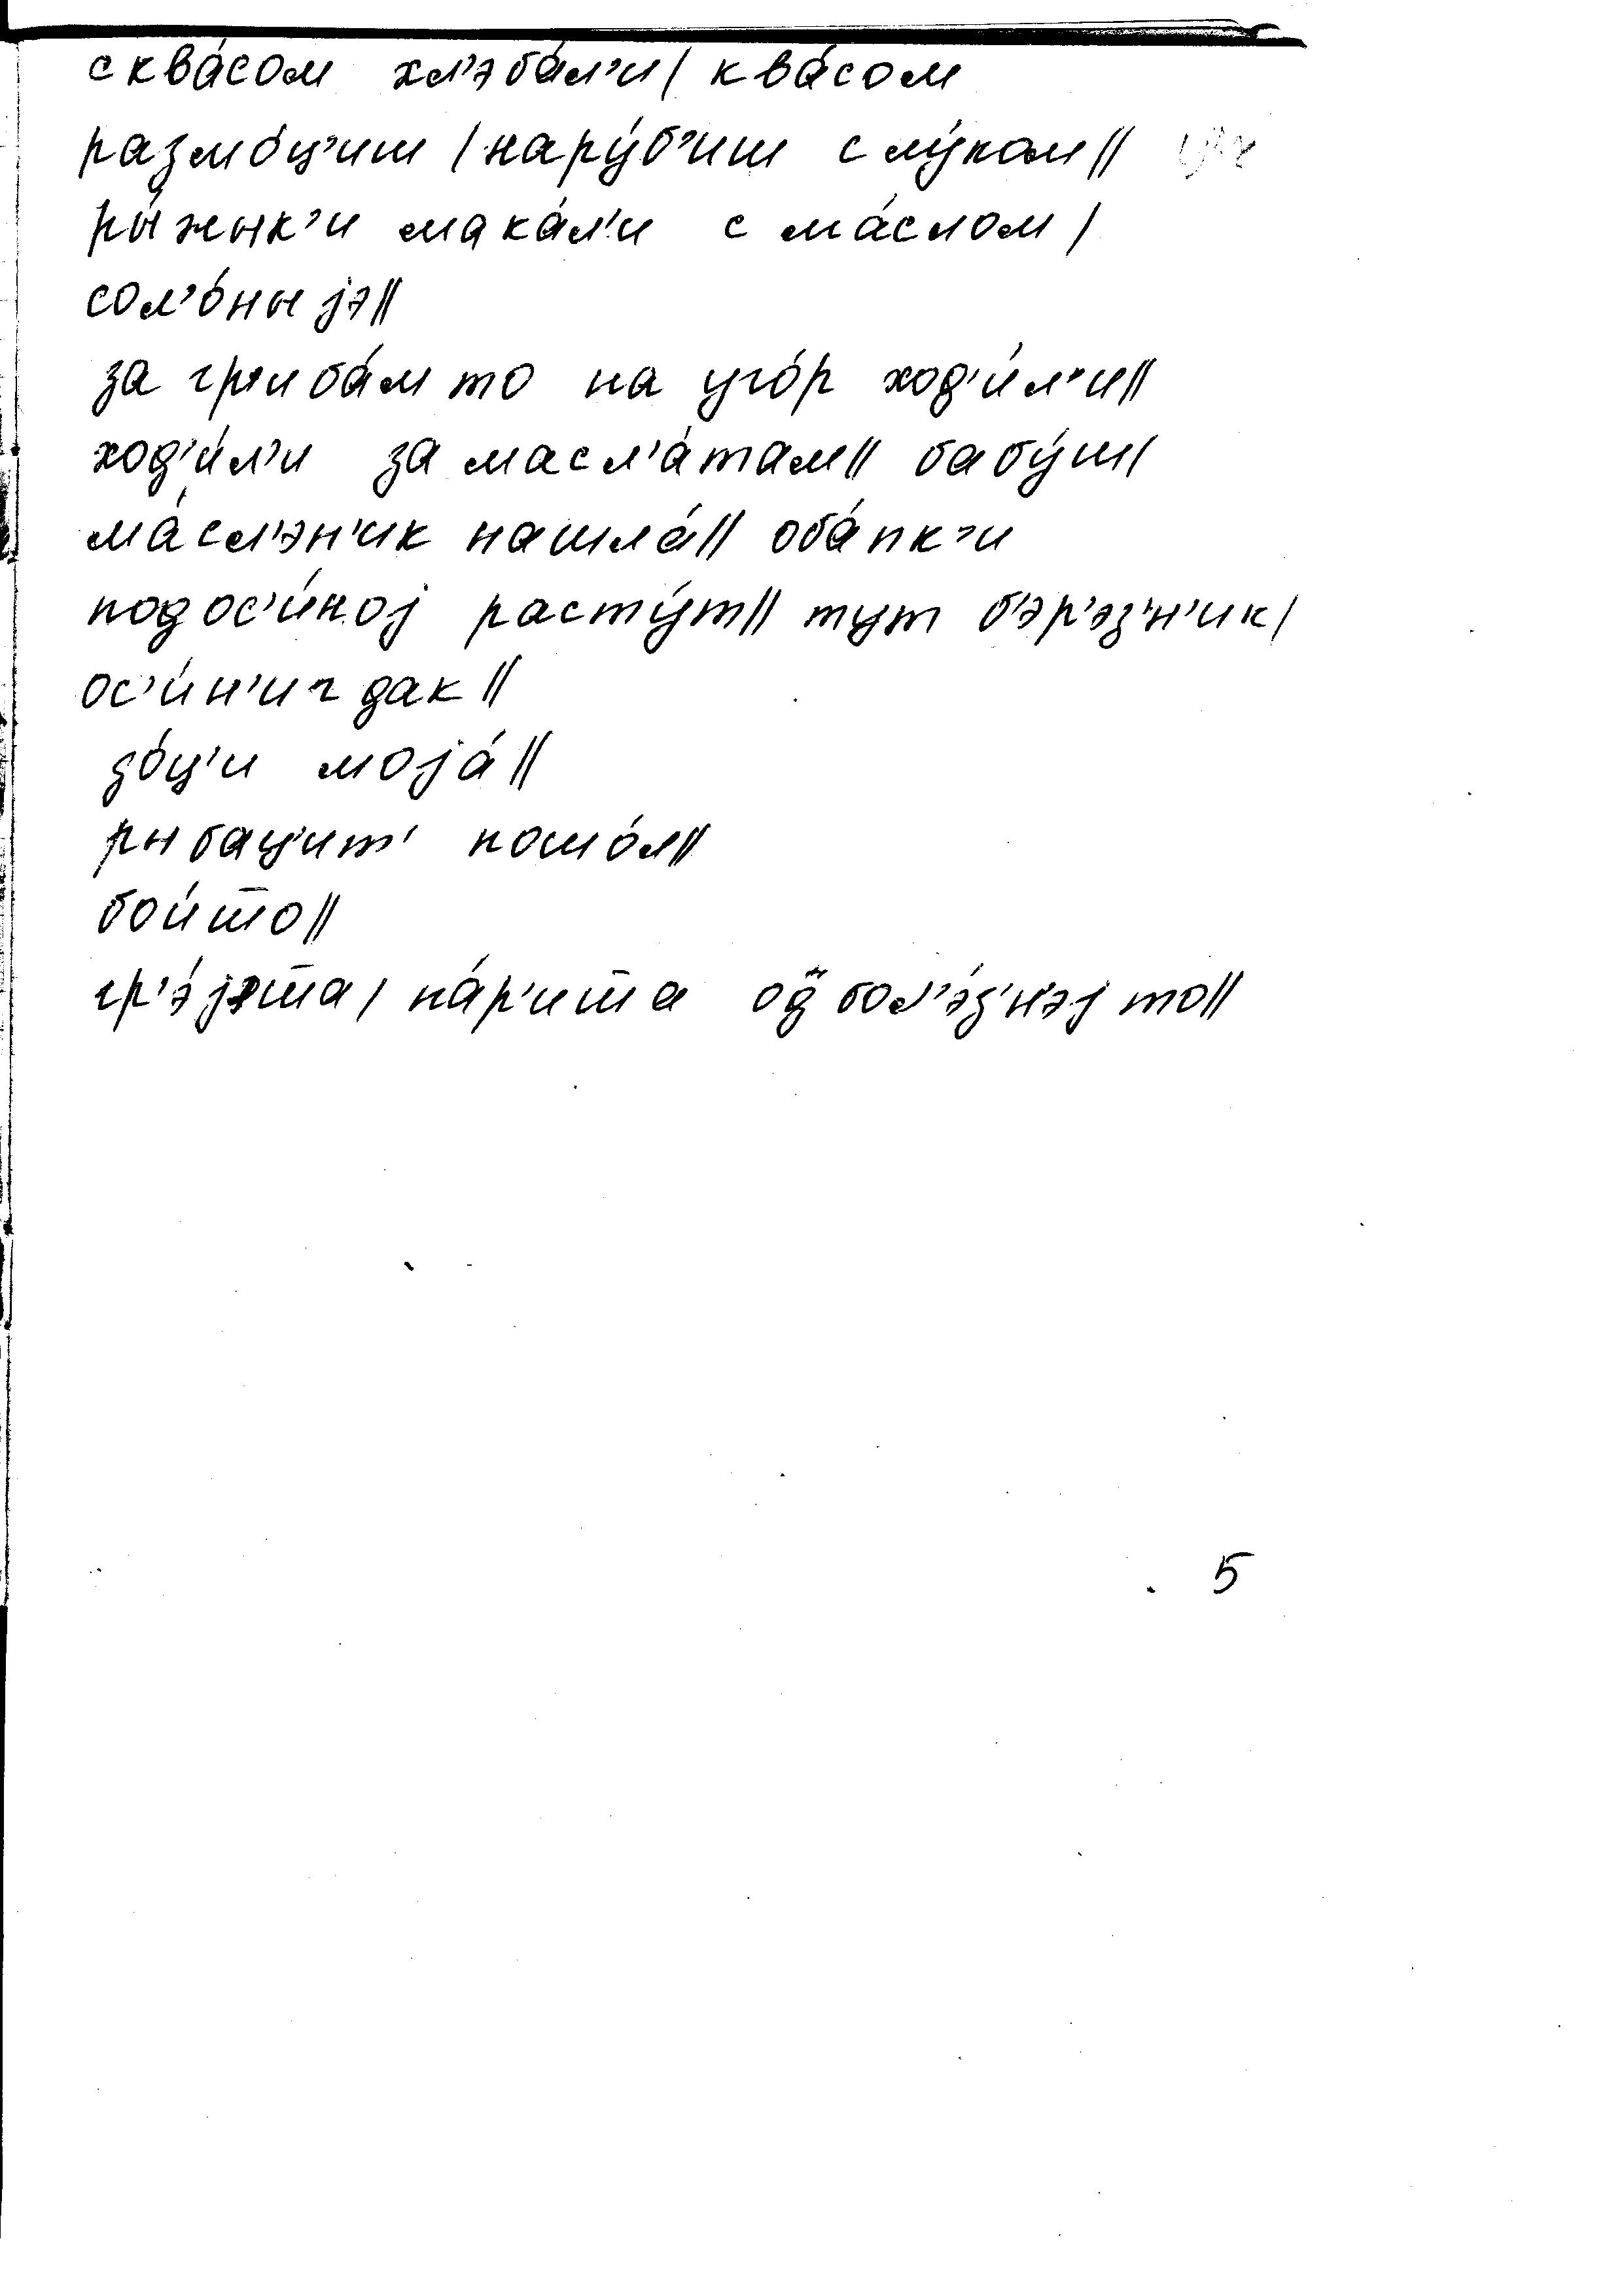 с ква́сом хл'эба́л'и| ква́сом
размо́ц'иш |нару́б'иш с лу́ком||
ры́жык'и мака́л'и с ма́слом|
сол'о́ныjэ||
за гр'иба́м то на уго́р ход'и́л'и||
ход'и́л'и за масл'а́там|| бабу́ш|
ма́сл'эн'ик нашла́|| оба́пк'и
под ос'и́ноj расту́т|| тут б'эр'э́з'н'ик|
ос'и́н'иг дак||
до́ц'и моjа́||
рыбац'ит' пошо́л||
бои́т̅о||
гр'э́jэт̅а| па́р'ит̅а од бол'э́з'н'эj то||
5